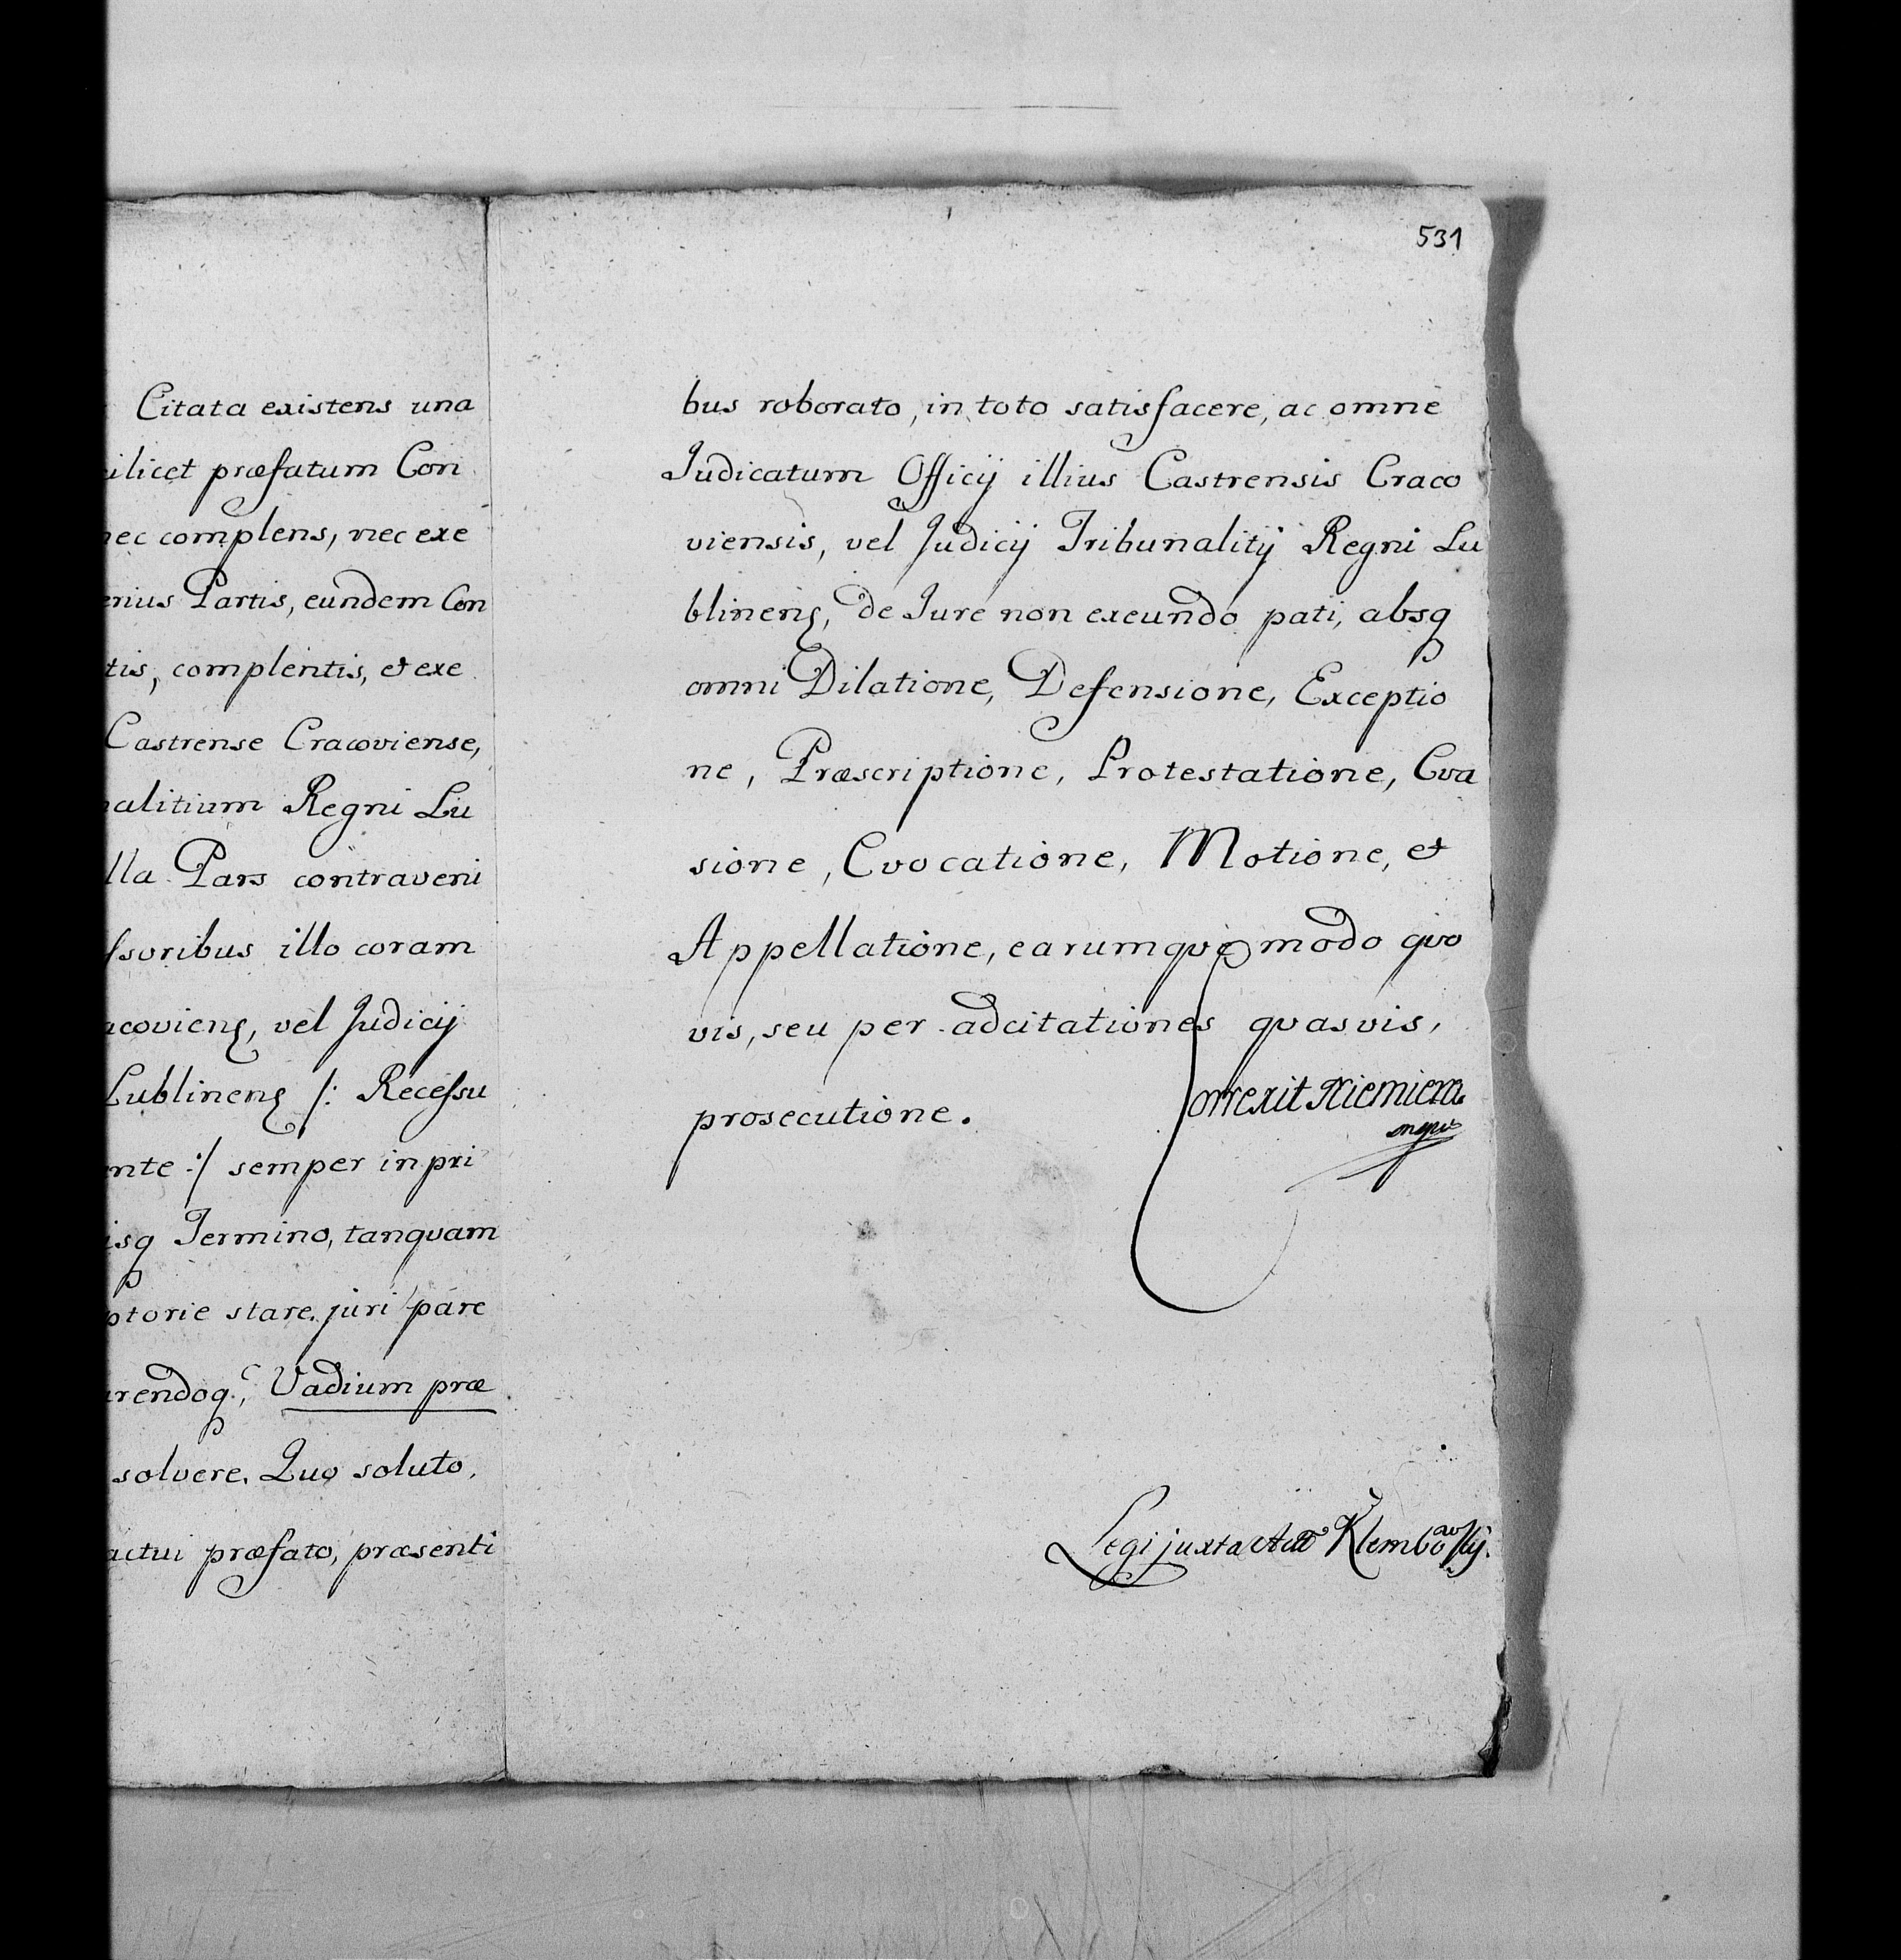 Citata existens una
ilicet præfatum Con
nec complens, nec exe
Partis, eundem Con
tis, complentis, et exe
Castrense Cracoviense,
alitium Regni Lu
lla Pars contraveni
ſsoribus illo coram
acovienſ, vel Judicij
Lublinenſ /: Receſsu
nte :/ semper in pri
isq Termino, tanquam
ptorie stare, juri pare
rendoq, Vadium præ
solvere. Quo soluto,
actui præfato, præsenti
531
bus roborato, in toto satisfacere, ac omne
Judicatum Officij illius Castrensis Craco
viensis, vel Judicij Tribunalitij Regni Lu
blinenſ, de Jure non exeundo pati, absq
omni Dilatione, Defensione, Exceptio
ne, Præscriptione, Protestatione, Eva
sione, Evocatione, Motione, et
Appellatione, earumque modo quo
vis, seu per adcitationes quasvis,
prosecutione.
Correxit Niemiera
mpp
Legi juxta Acta